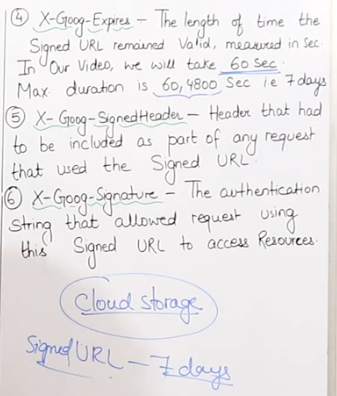 ④ X-Goog-Expires – The length of time the
Signed URL remained Valid, measured in Sec.
In Our Video, we will take 60 Sec.
Max. duration is 60,4800 Sec i.e 7 days
⑤ X-Goog-SignedHeader – Header that had
to be included as part of any request
that used the Signed URL.
⑥ X-Goog-Signature – The authentication
String that allowed request using
this Signed URL to access Resources.
Cloud Storage
Signed URL – 7 days